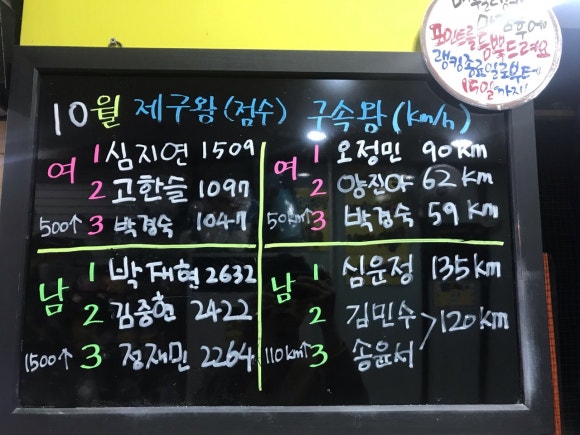 포인트를 등록드려요
랭킹종료일로부터
15일까지!
10월 제구왕 (점수) 구속왕 (km/h)
여 1 심지연 1509
2 고한슬 1097
500↑ 3 박경숙 1047
여 1 오정민 90 km
2 양진아 62 km
50km↑ 3 박경숙 59 km
남 1 박재현 2632
2 김중현 2422
1500↑ 3 정재민 2264
남 1 심윤정 135 km
2 김민수 > 120 km
110km↑ 3 송윤서